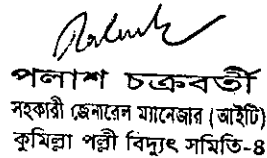 পলাশ চক্রবর্তী
সহকারী জেনারেল ম্যানেজার (আইটি)
কুমিল্লা পল্লী বিদ্যুৎ সমিতি-৪